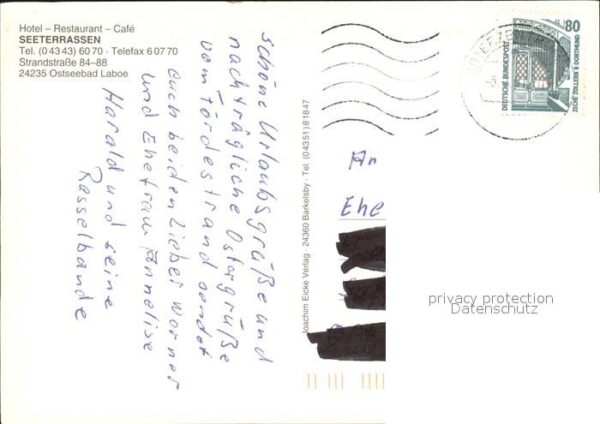 Hotel – Restaurant – Café
SEETERRASSEN
Tel. (0 43 43) 60 70 · Telefax 6 07 70
Strandstraße 84–88
24235 Ostseebad Laboe
schöne Urlaubsgrüße und
nachträgliche Ostergrüße
vom Fördestrand sendet
euch beiden lieber Werner
und Ehefrau Annelise
Harald und seine
Rasselbande
Joachim Eicke Verlag · 24360 Barkelsby · Tel. (0 43 51) 8 18 47
80
DEUTSCHE BUNDESPOST
ZECHE ZOLLERN II DORTMUND
An
Ehe
privacy protection
Datenschutz